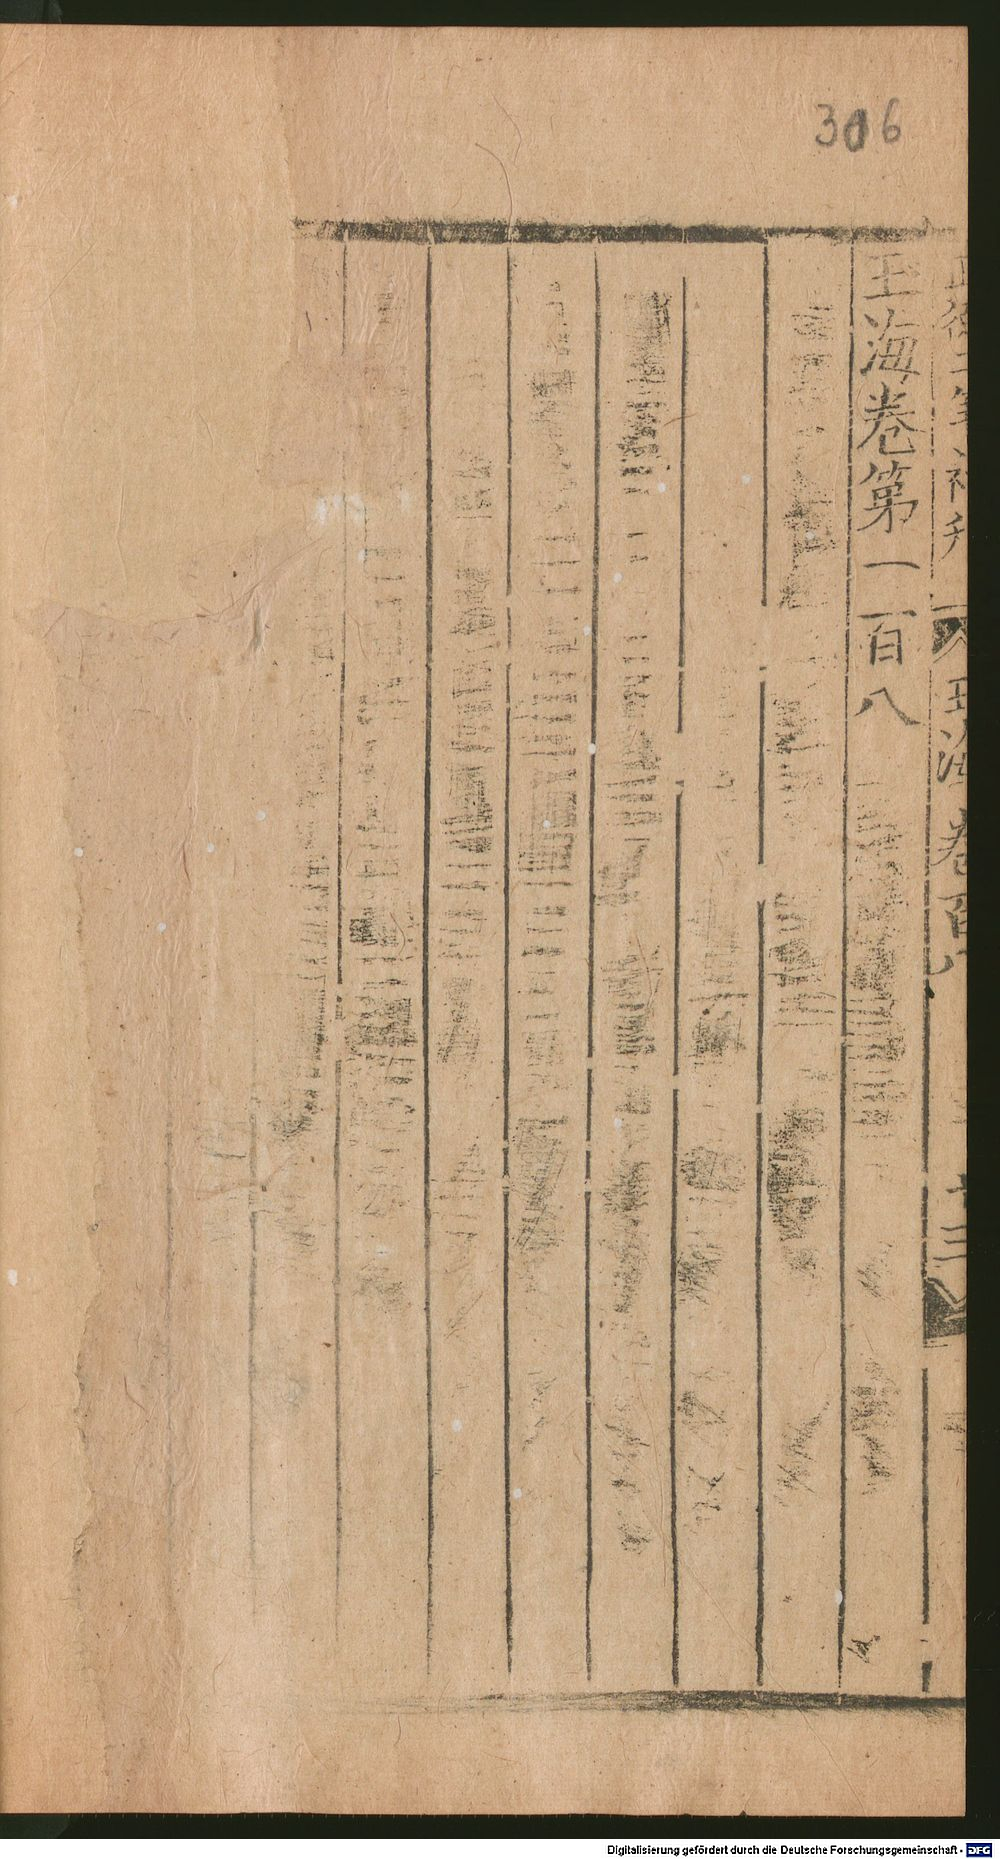 306
玉海卷第一百八
玉海卷百八
十三
Digitalisierung gefördert durch die Deutsche Forschungsgemeinschaft - DFG